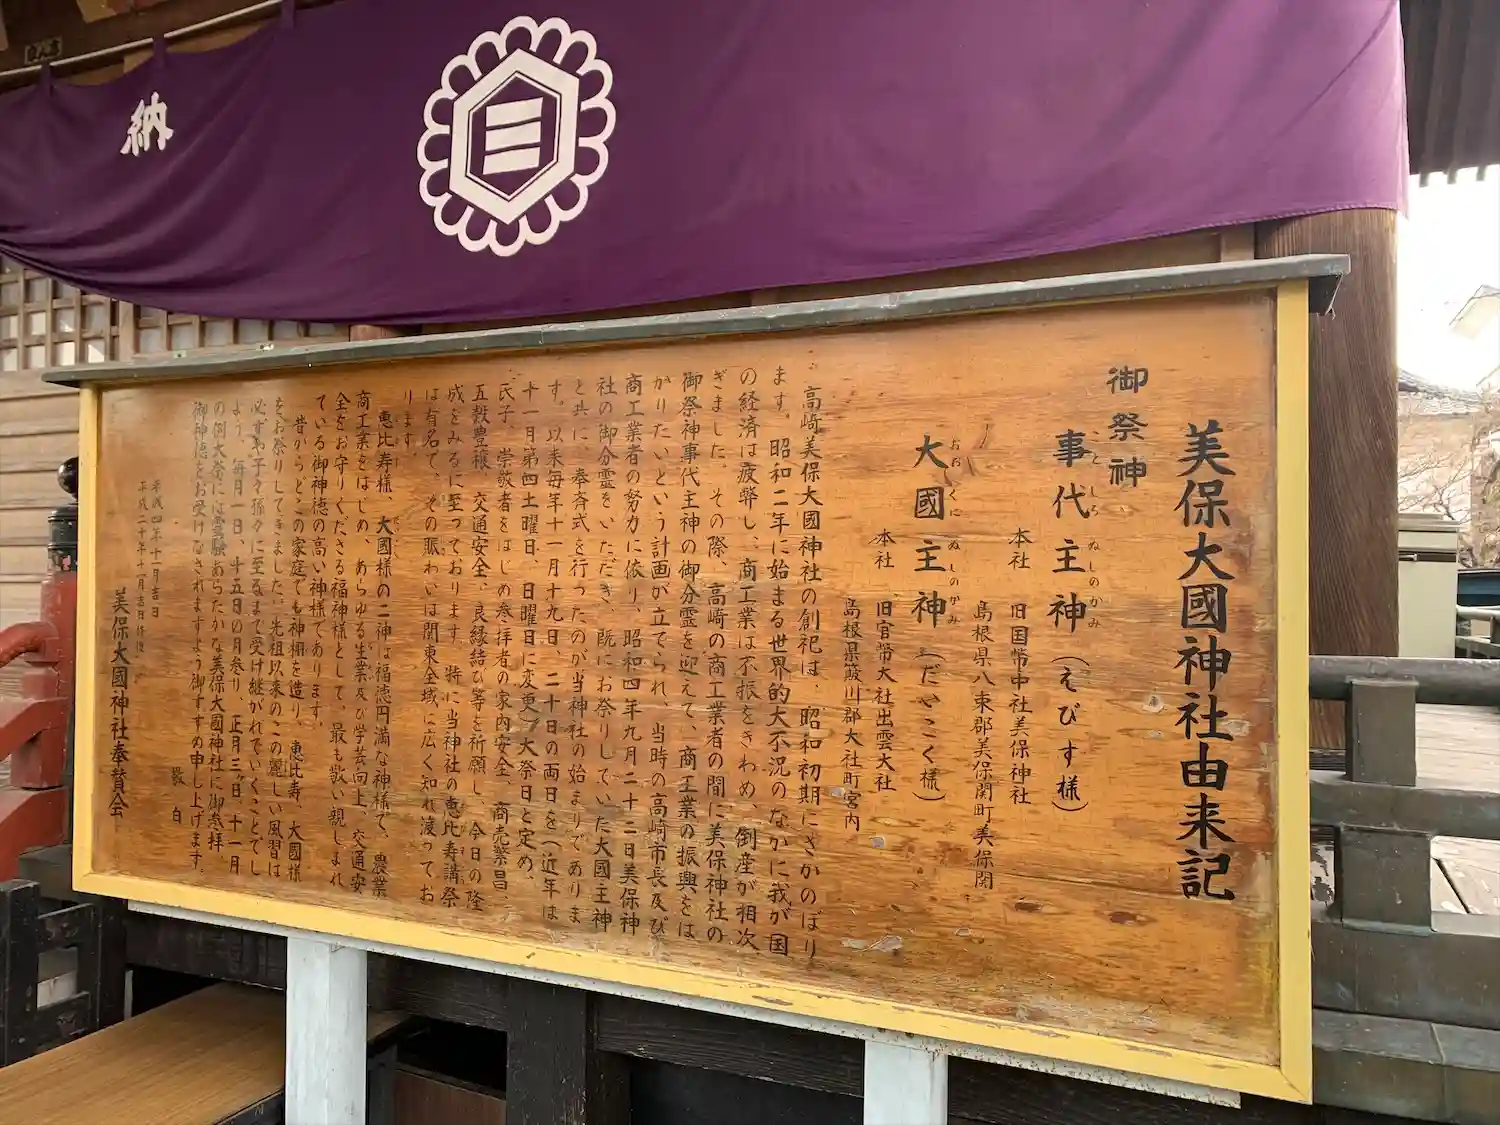 納
美保大國神社由来記
御祭神
事代主神（えびす様）
ことしろぬしのかみ
本社　旧国幣中社美保神社
島根県八束郡美保関町美保関
大國主神（だいこく様）
おおくにぬしのかみ
本社　旧官幣大社出雲大社
島根県簸川郡大社町宮内
高崎美保大國神社の創祀は、昭和初期にさかのぼり
ます。昭和二年に始まる世界的大不況のなかに我が国
の経済は疲弊し、商工業は不振をきわめ、倒産が相次
ぎました。その際、高崎の商工業者の間に美保神社の
御祭神事代主神の御分霊を迎えて、商工業の振興をは
かりたいという計画が立てられ、当時の高崎市長及び
商工業者の努力に依り、昭和四年九月二十二日美保神
社の御分霊をいただき、既にお祭りしていた大國主神
と共に、奉斉式を行ったのが当神社の始まりでありま
す。以来毎年十一月十九日、二十日の両日を（近年は
十一月第四土曜日、日曜日に変更）大祭日と定め、
氏子、崇敬者をはじめ参拝者の家内安全、商売繁昌、
五穀豊穣、交通安全、良縁結び等を祈願し、今日の隆
成をみるに至っております。特に当神社の恵比寿講祭
は有名で、その賑わいは関東全域に広く知れ渡ってお
ります。
恵比寿様、大國様の二神は福徳円満な神様で、農業
商工業をはじめ、あらゆる生業及び学芸向上、交通安
全をお守りくださる福神様として、最も敬い親しまれ
ている御神徳の高い神様であります。
昔からどこの家庭でも神棚を造り、恵比寿、大國様
をお祭りしてきました。先祖以来のこの麗しい風習は
必ずや子々孫々に至るまで受け継がれていくことでし
ょう。毎月一日、十五日の月参り、正月三ヶ日、十一月
の例大祭には霊験あらたかな美保大國神社に御参拝、
御神徳をお受けなされますよう御すすめ申し上げます。
敬白
平成四年十一月吉日
平成二十年十一月吉日修復
美保大國神社奉賛会